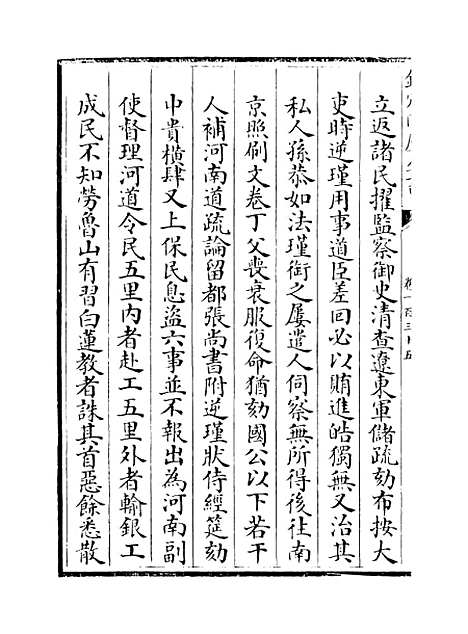 立返諸民擢監察御史清查遼東軍儲疏劾布按大
吏時逆瑾用事道臣差回必以賄進皓獨無又治其
私人孫恭如法瑾銜之屢遣人伺察無所得後往南
京照刷文卷丁父喪衰服復命猶劾國公以下若干
人補河南道疏論留都張尚書附逆瑾狀侍經筵劾
中貴橫肆又上保民息盜六事並不報出為河南副
使督理河道令民五里內者赴工五里外者輸銀工
成民不知勞魯山有習白蓮教者誅其首惡餘悉散